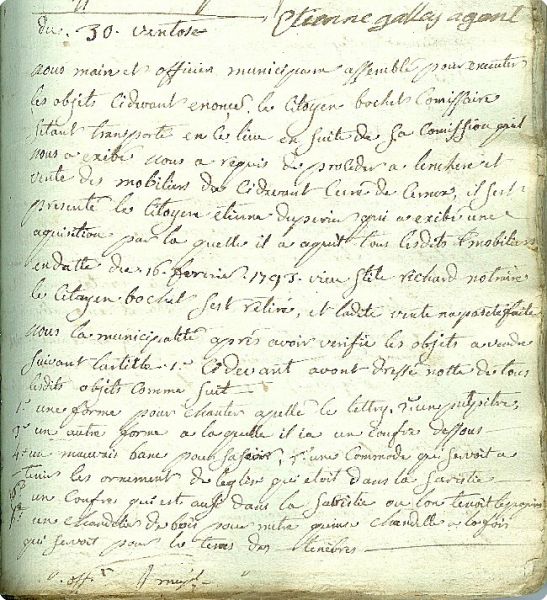 Etienne gallay agent
du 30 ventose
nous maire et officier municipaux assemblé pour executer
les objets cidevant enoncé. le Citoyen bochet Comissaire
sétant transporté en ce lieu en suite de sa Comission quil
nous a exibé nous a requis de proceder a lenchere et
vente des mobiliers du Cidevant Curé de Cernex, il sest
presenté le Citoyen étienne duperier qui a exibé une
aquisition par la quelle il a aquit tous lesdits mobiliers
en datte du 16 fevrier 1793 vieu stile richard notaire
le Citoyen bochet sest rétiré, et ladite vente na pas eté faite
nous la municipalité aprés avoir verifié les objets a vendre
suivant lartille 1. Cidevant avont dressé notte de tous
lesdits objets comme suit
1° une forme pour chanter apellé le lettry, 2° un pupitre,
3° un autre forme a la quelle il i a un Coufre dessous
4° un mauvais banc pour sasseoir, 5° une Commode qui servoit a
tenir les ornement de leglise qui etoit dans la sacristie
un Coufre qui est aussi dans la sacristie ou lon tenoit les papiers
une chandelle de bois pour mettre quinze chandelle a la fois
qui servoit pour le tems des ténèbres
off. m